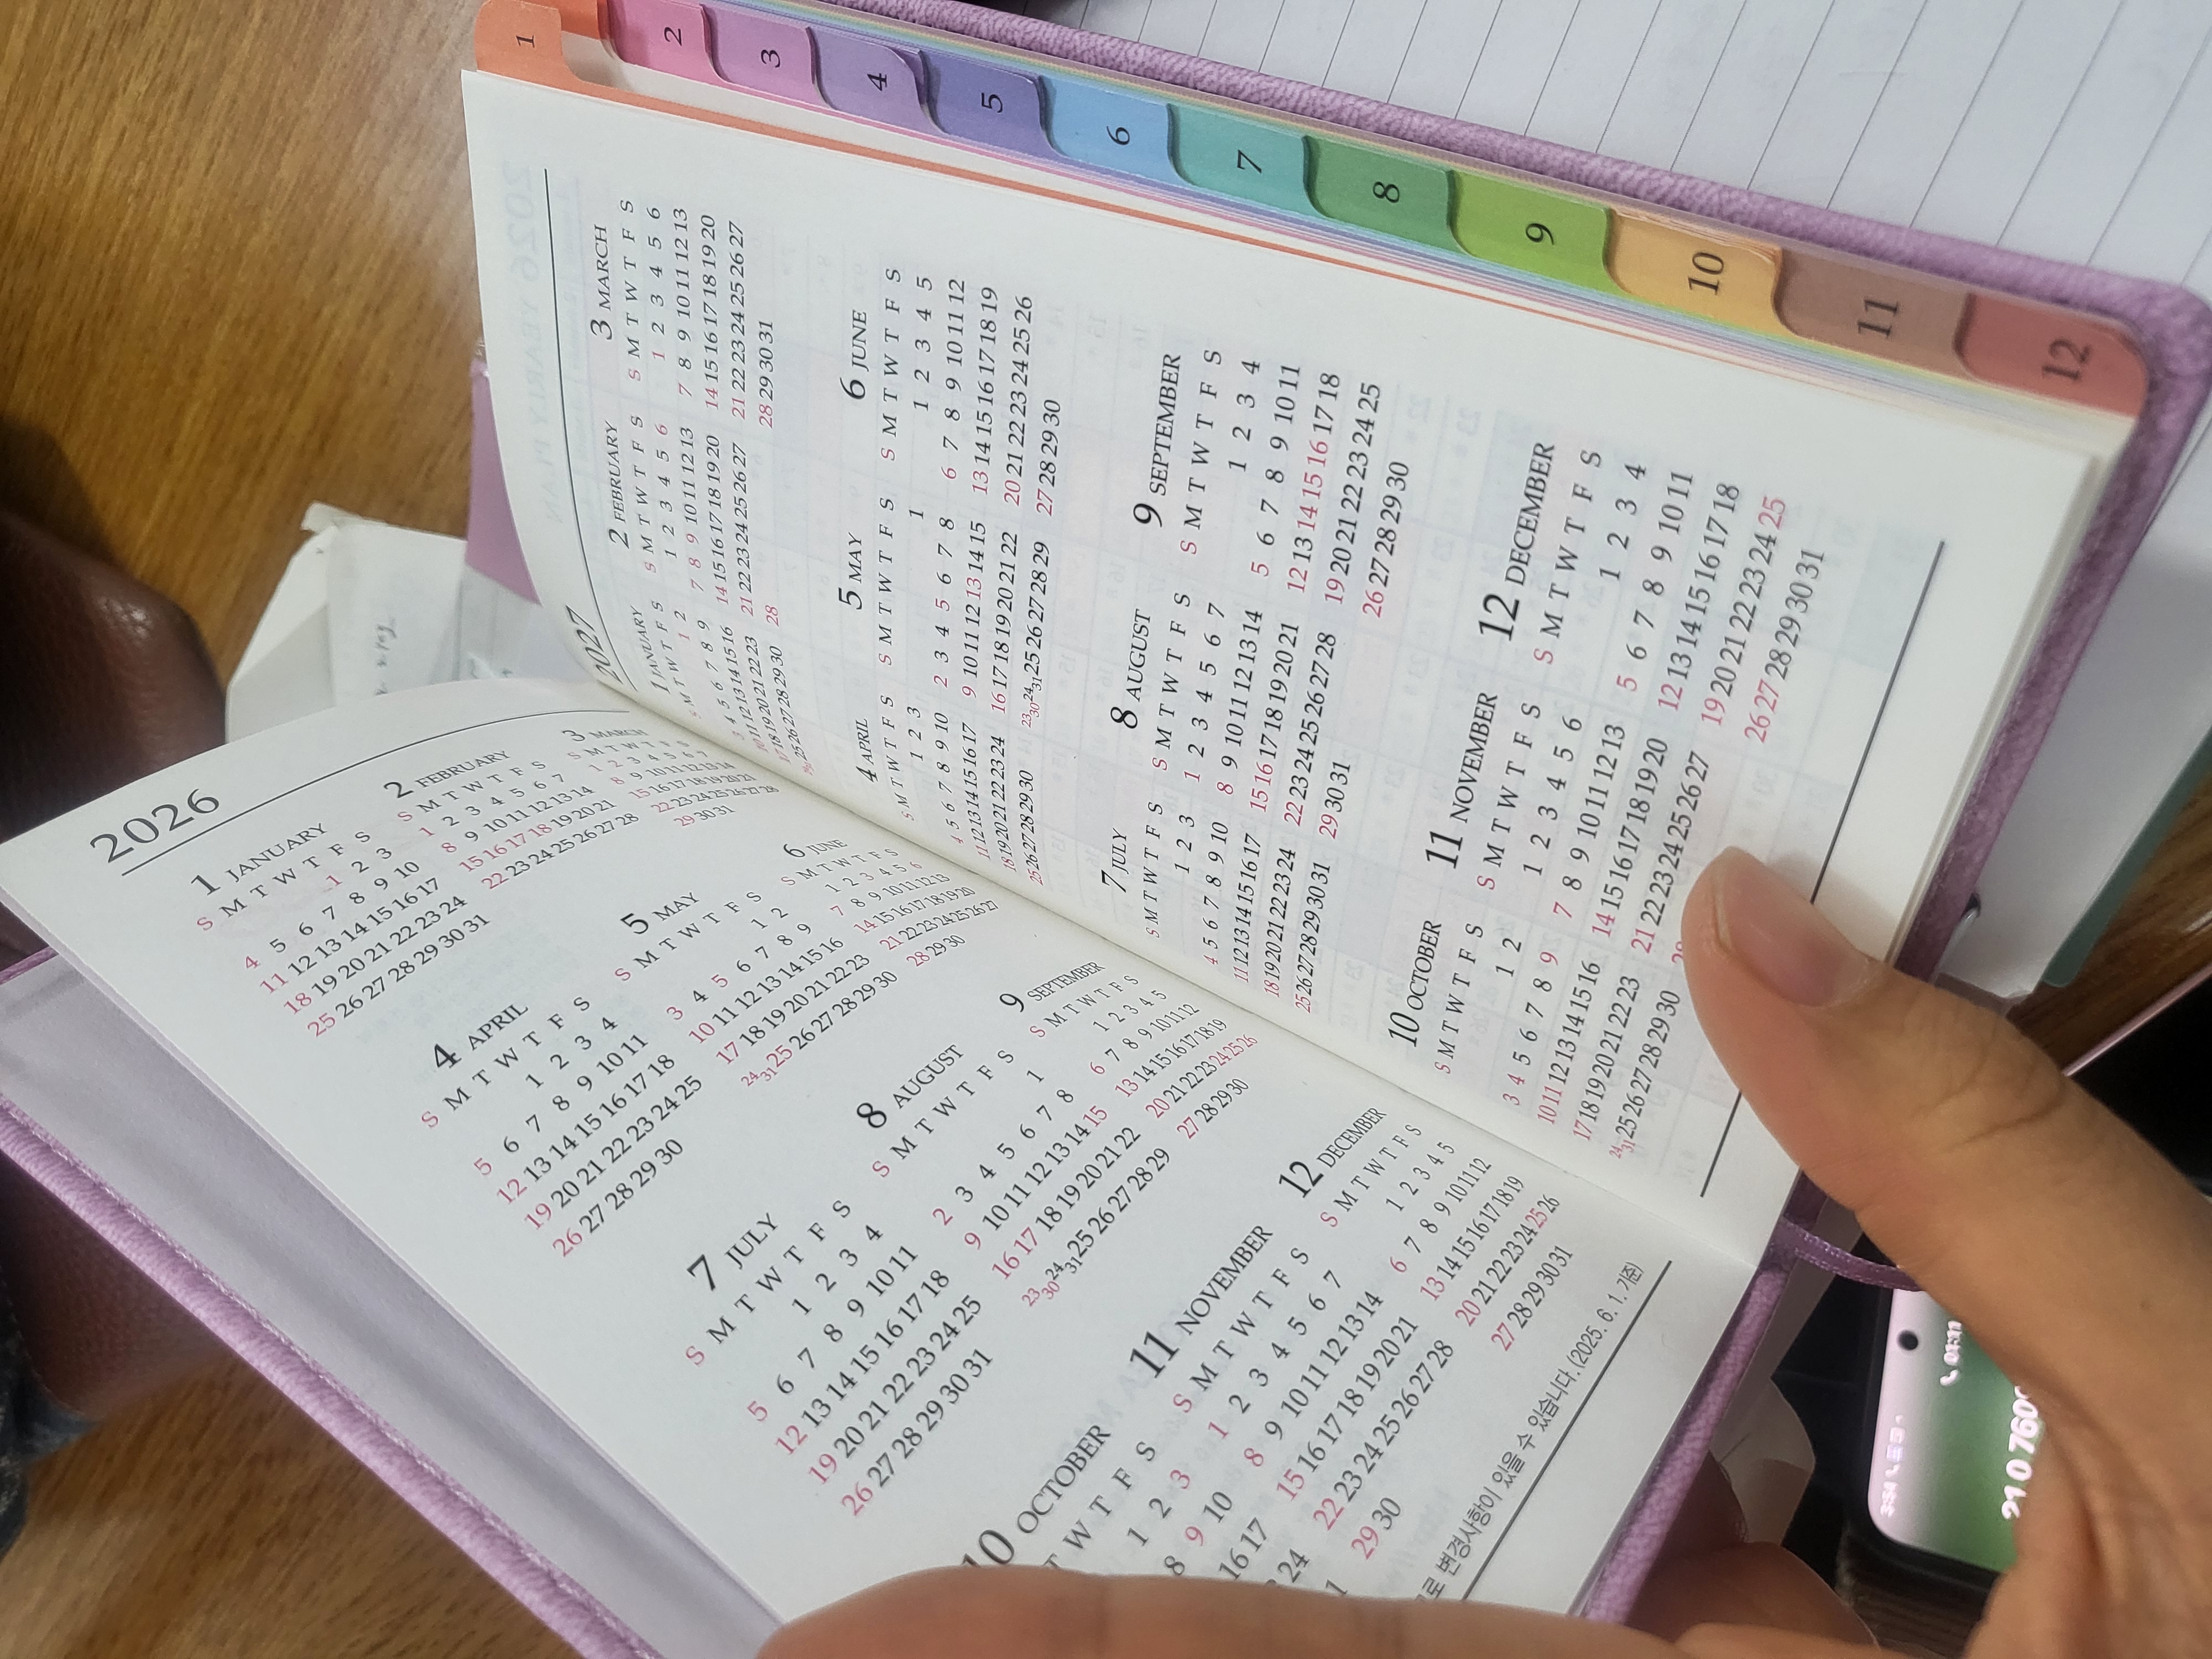 2026
1 JANUARY
S M T W T F S
1 2 3
4 5 6 7 8 9 10
11 12 13 14 15 16 17
18 19 20 21 22 23 24
25 26 27 28 29 30 31
2 FEBRUARY
S M T W T F S
1 2 3 4 5 6 7
8 9 10 11 12 13 14
15 16 17 18 19 20 21
22 23 24 25 26 27 28
3 MARCH
S M T W T F S
1 2 3 4 5 6 7
8 9 10 11 12 13 14
15 16 17 18 19 20 21
22 23 24 25 26 27 28
29 30 31
4 APRIL
S M T W T F S
1 2 3 4
5 6 7 8 9 10 11
12 13 14 15 16 17 18
19 20 21 22 23 24 25
26 27 28 29 30
5 MAY
S M T W T F S
1 2
3 4 5 6 7 8 9
10 11 12 13 14 15 16
17 18 19 20 21 22 23
24 31 25 26 27 28 29 30
6 JUNE
S M T W T F S
1 2 3 4 5 6
7 8 9 10 11 12 13
14 15 16 17 18 19 20
21 22 23 24 25 26 27
28 29 30
7 JULY
S M T W T F S
1 2 3 4
5 6 7 8 9 10 11
12 13 14 15 16 17 18
19 20 21 22 23 24 25
26 27 28 29 30 31
8 AUGUST
S M T W T F S
1
2 3 4 5 6 7 8
9 10 11 12 13 14 15
16 17 18 19 20 21 22
23 30 24 31 25 26 27 28 29
9 SEPTEMBER
S M T W T F S
1 2 3 4 5
6 7 8 9 10 11 12
13 14 15 16 17 18 19
20 21 22 23 24 25 26
27 28 29 30
10 OCTOBER
T W T F S
1 2 3
8 9 10
16 17
24
11 NOVEMBER
S M T W T F S
1 2 3 4 5 6 7
8 9 10 11 12 13 14
15 16 17 18 19 20 21
22 23 24 25 26 27 28
29 30
12 DECEMBER
S M T W T F S
1 2 3 4 5
6 7 8 9 10 11 12
13 14 15 16 17 18 19
20 21 22 23 24 25 26
27 28 29 30 31
로 변경사항이 있을 수 있습니다.(2025. 6. 1. 기준)
2027
1 JANUARY
S M T W T F S
1 2
3 4 5 6 7 8 9
10 11 12 13 14 15 16
17 18 19 20 21 22 23
25 26 27 28 29 30
2 FEBRUARY
S M T W T F S
1 2 3 4 5 6
7 8 9 10 11 12 13
14 15 16 17 18 19 20
21 22 23 24 25 26 27
28
3 MARCH
S M T W T F S
1 2 3 4 5 6
7 8 9 10 11 12 13
14 15 16 17 18 19 20
21 22 23 24 25 26 27
28 29 30 31
4 APRIL
S M T W T F S
1 2 3
4 5 6 7 8 9 10
11 12 13 14 15 16 17
18 19 20 21 22 23 24
25 26 27 28 29 30
5 MAY
S M T W T F S
1
2 3 4 5 6 7 8
9 10 11 12 13 14 15
16 17 18 19 20 21 22
23 30 24 31 25 26 27 28 29
6 JUNE
S M T W T F S
1 2 3 4 5
6 7 8 9 10 11 12
13 14 15 16 17 18 19
20 21 22 23 24 25 26
27 28 29 30
7 JULY
S M T W T F S
1 2 3
4 5 6 7 8 9 10
11 12 13 14 15 16 17
18 19 20 21 22 23 24
25 26 27 28 29 30 31
8 AUGUST
S M T W T F S
1 2 3 4 5 6 7
8 9 10 11 12 13 14
15 16 17 18 19 20 21
22 23 24 25 26 27 28
29 30 31
9 SEPTEMBER
S M T W T F S
1 2 3 4
5 6 7 8 9 10 11
12 13 14 15 16 17 18
19 20 21 22 23 24 25
26 27 28 29 30
10 OCTOBER
S M T W T F S
1 2
3 4 5 6 7 8 9
10 11 12 13 14 15 16
17 18 19 20 21 22 23
24 31 25 26 27 28 29 30
11 NOVEMBER
S M T W T F S
1 2 3 4 5 6
7 8 9 10 11 12 13
14 15 16 17 18 19 20
21 22 23 24 25 26 27
28
12 DECEMBER
S M T W T F S
1 2 3 4
5 6 7 8 9 10 11
12 13 14 15 16 17 18
19 20 21 22 23 24 25
26 27 28 29 30 31
1
2
3
4
5
6
7
8
9
10
11
12